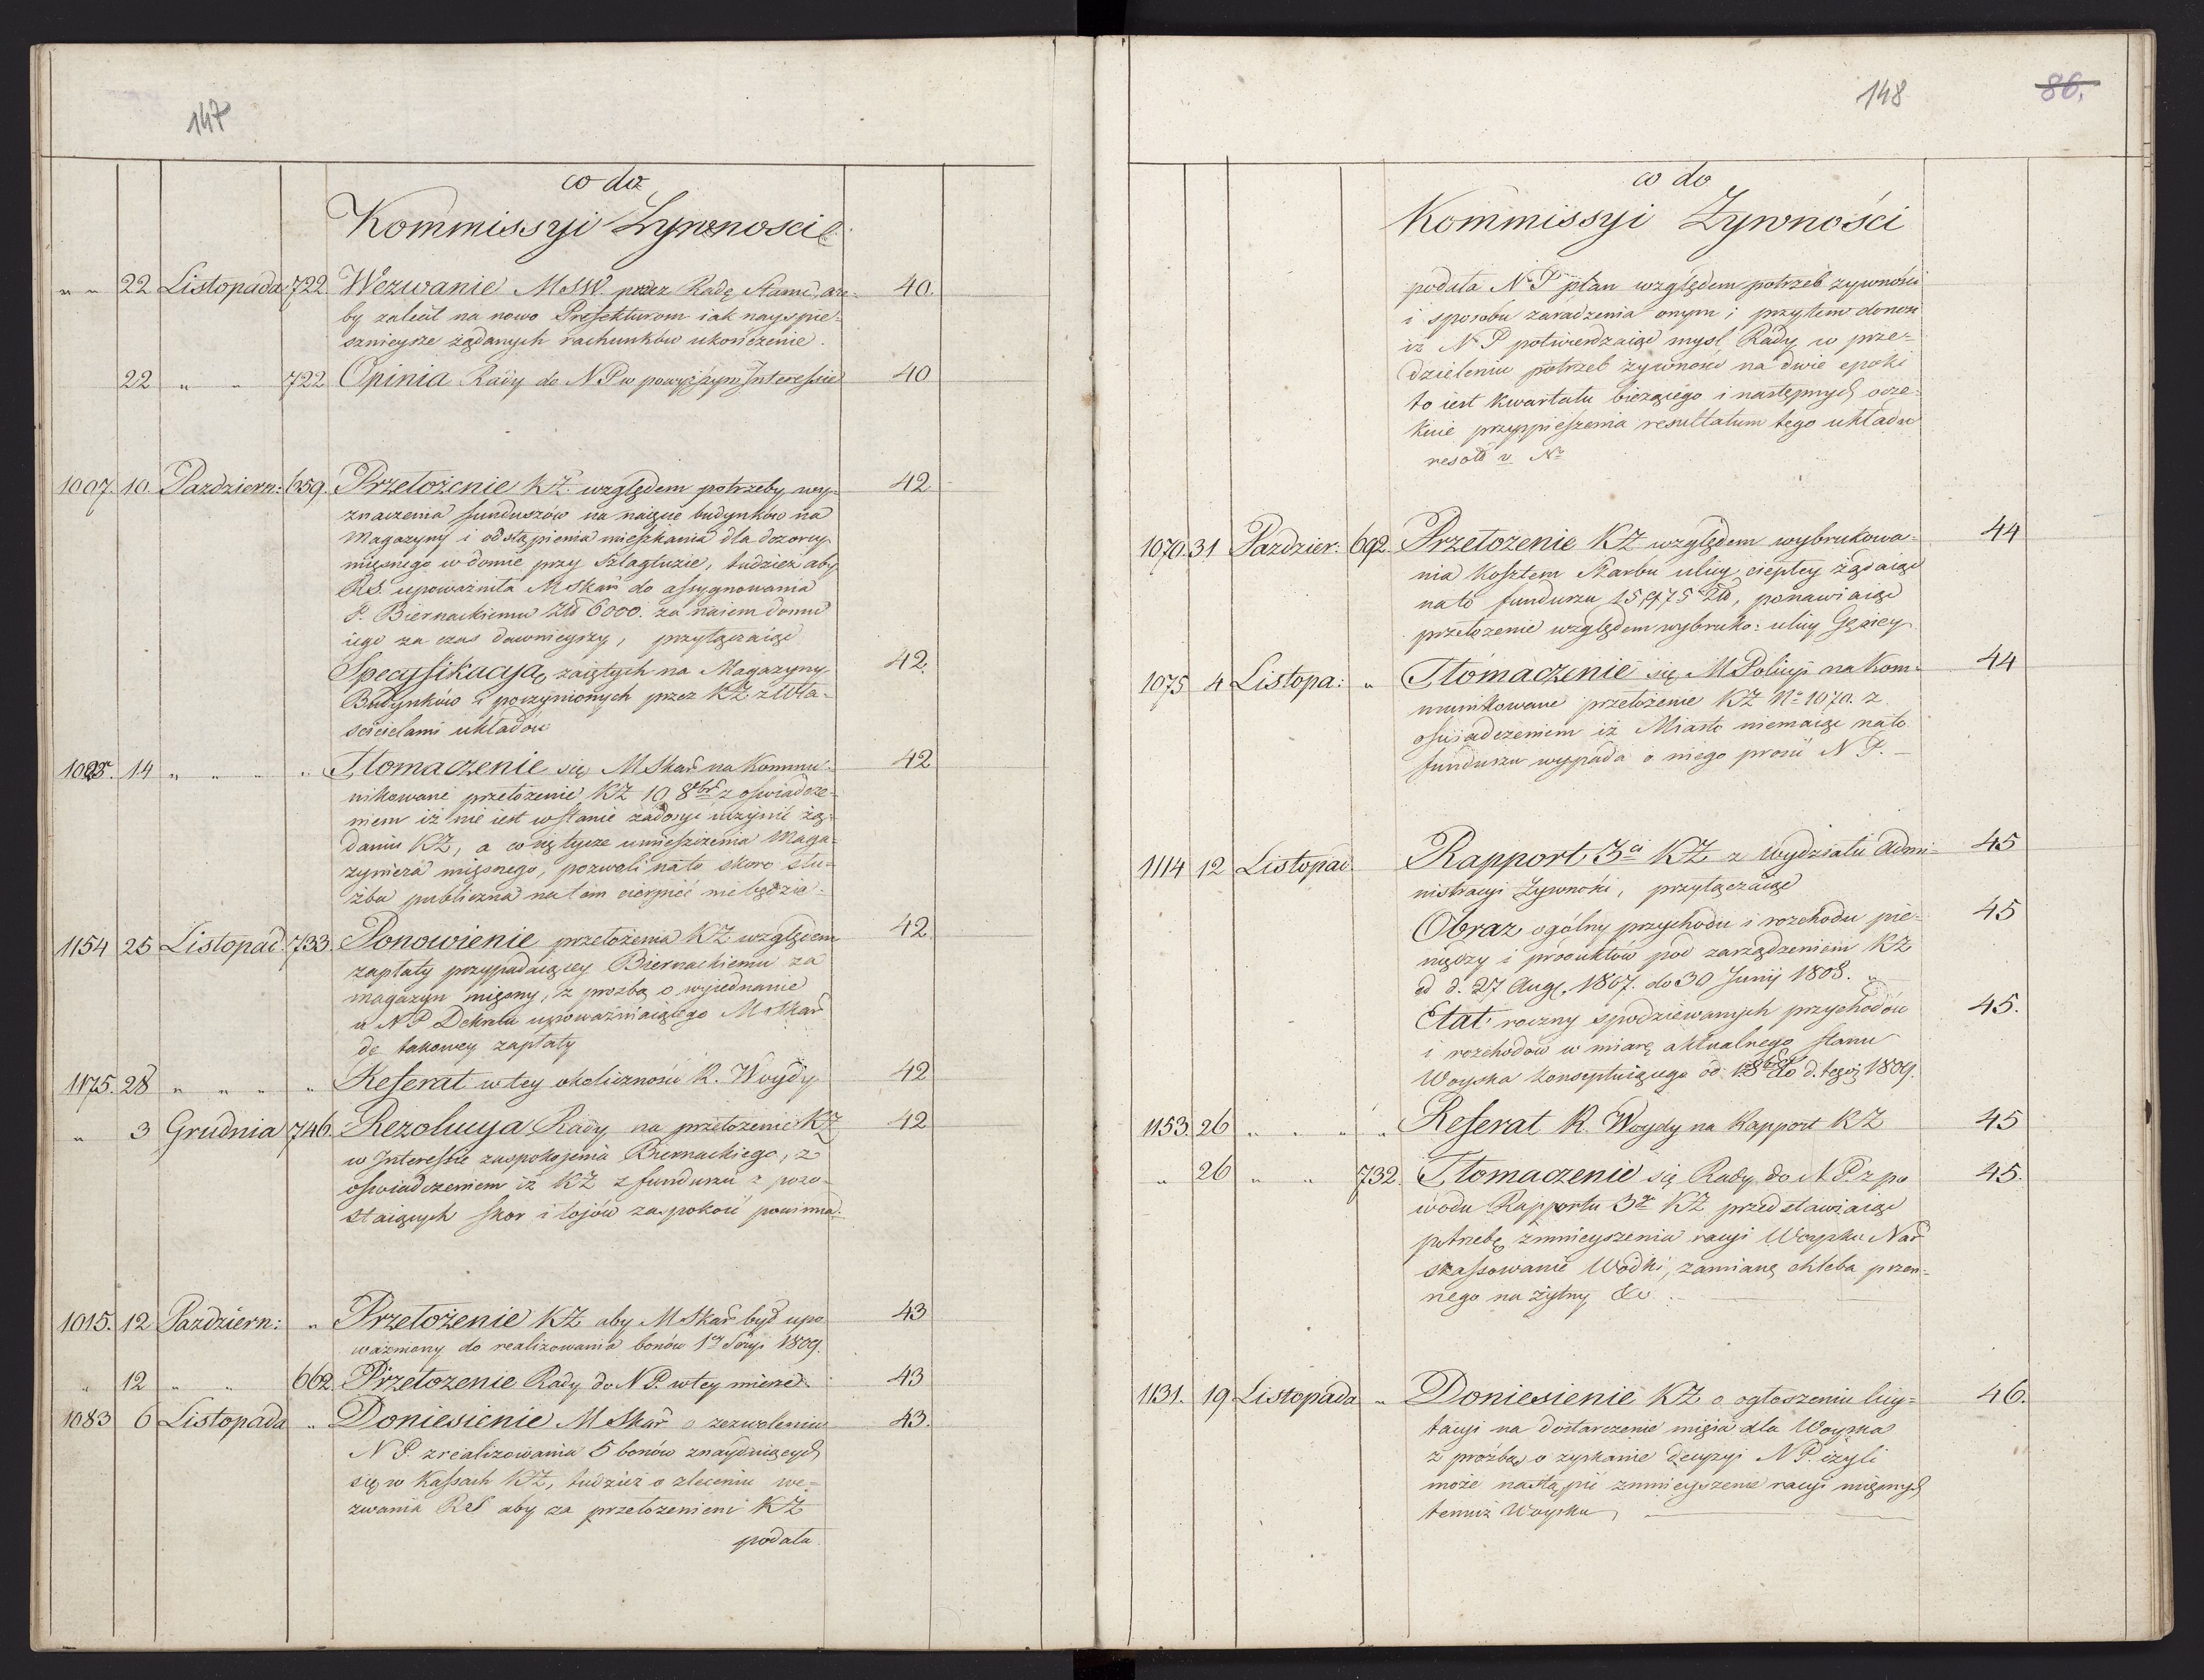 147
co do
Kommissyi Żywnosci
" " 22 Listopada 722. Wezwanie MSW. przez Radę Stanu, aże- 40.
by zalecił na nowo Prefekturom iak nayspie-
sznieysze żądanych rachunków ukończenie.
22 " " 722 Opinia Rady do NP w powyższym Interessie 40
1007. 10. Pazdziern: 659. Przełożenie KŻ. względem potrzeby wy- 42
znaczenia funduszów na naięcie budynków na
Magazyny i odstąpienia mieszkania dla dozorcy
mięsnego w domie przy Szlagtuzie, tudzież aby
RS. upoważniła MSkar do assygnowania
P. Biernackiemu Złł 6000. za naiem domu
iego za czas dawnieyszy, przyłączaiąc
Specyfikacyą zaiętych na Magazyny 42.
Budynków i poczynionych przez KŻ z Wła-
ścicielami układów
14 " " " " Tłomaczenie się MSkar na Kommu- 42
nikowane przełożenie KŻ 10 8bra z oświadcze-
niem iż nie iest w stanie zadosyć uczynić żą-
daniu KŻ, a co się tycze umieszczenia Maga-
zyniera mięsnego, pozwoli na to skoro słu-
żba publiczna na tem cierpieć nie będzie.
1154 25 Listopad. 733. Ponowienie przełożenia KŻ względem 42.
zapłaty przypadaiącey Biernackiemu za
magazyn mięsny, z prozbą o wyiednanie
u NP Dekretu upoważniaiącego MSkar
do takowey zapłaty
1175. 28 " " " " Referat w tey okoliczności R. Woydy 42
" 3 Grudnia 746. Rezolucya Rady na przełożenie KŻ 42
w Interessie zaspokojenia Biernackiego, z
oświadczeniem iż KŻ z funduszu z pozo-
staiących skor i łojów zaspokoić powinna.
1015. 12 Pazdziern: " Przełożenie KŻ aby MSkar był upo- 43
ważniony do realizowania bonów 1ey Seryi 1809.
" 12 " " 662. Przełożenie Rady do NP. w tey mierze 43
1083 6 Listopada " Doniesienie MSkar o zezwoleniu 43.
NP. zrealizowania 5 bonów znayduiących
się w Kassach KŻ, tudzież o zleceniu we-
zwania RS aby za przełożeniem KŻ
podała
148
86.
co do
Kommissyi Żywności
podała NP plan względem potrzeb żywności
i sposobu zaradzenia onym; przytem donosi
iż NP potwierdzaiąc mysl Rady w prze-
dzieleniu potrzeb żywności na dwie epoki
to iest kwartału bieżącego i następnych ocze-
kuie przyspieszenia resultatum tego układu
1070. 31 Pazdzier: 692. Przełożenie KŻ względem wybrukowa- 44
nia kosztem Skarbu ulicy ciepłey żądaiąc
na to funduszu 15,975 Złł, ponawiaiąc
przełożenie względem wybruko: ulicy Gęsiey
1075 4 Listopa: " Tłomaczenie się MPolicyi na Kom- 44
munikowane przełożenie KŻ No 1070. z
oświadczeniem iż Miasto niemaiąc na to
funduszu wypada o niego prosić NP. —
1114 12 Listopad. Rapport 3ci KŻ z Wydziału Admi- 45
nistracyi Żywności, przyłączaiąc
Obraz ogólny przychodu i rozchodu pie- 45
niędzy i produktów pod zarządzeniem KŻ
od d. 27 Aug. 1807. do 30 Junij 1808.
Etat roczny spodziewanych przychodów 45.
i rozchodów w miarę aktualnego stanu
Woyska konsystuiącego od 1 8bra do d. tegoż 1809.
1153. 26 " " " " Referat R. Woydy na Rapport KŻ 45
" 26 " " 732. Tłomaczenie się Rady do NP. z po 45.
wodu Rapportu 3go KŻ przedstawiaiąc
potrzebę zmnieyszenia racyi Woysku Nar
skassowanie Wódki, zamianę chleba pszen-
nego na żytny &c. —
1131. 19 Listopada " Doniesienie KŻ o ogłoszeniu licy- 46.
tacyi na dostarczenie mięsa dla Woyska
z prozbą o zyskanie decyzyi NP. czyli
może nastąpić zmnieyszenie racyi mięsnych
temuż Woysku —